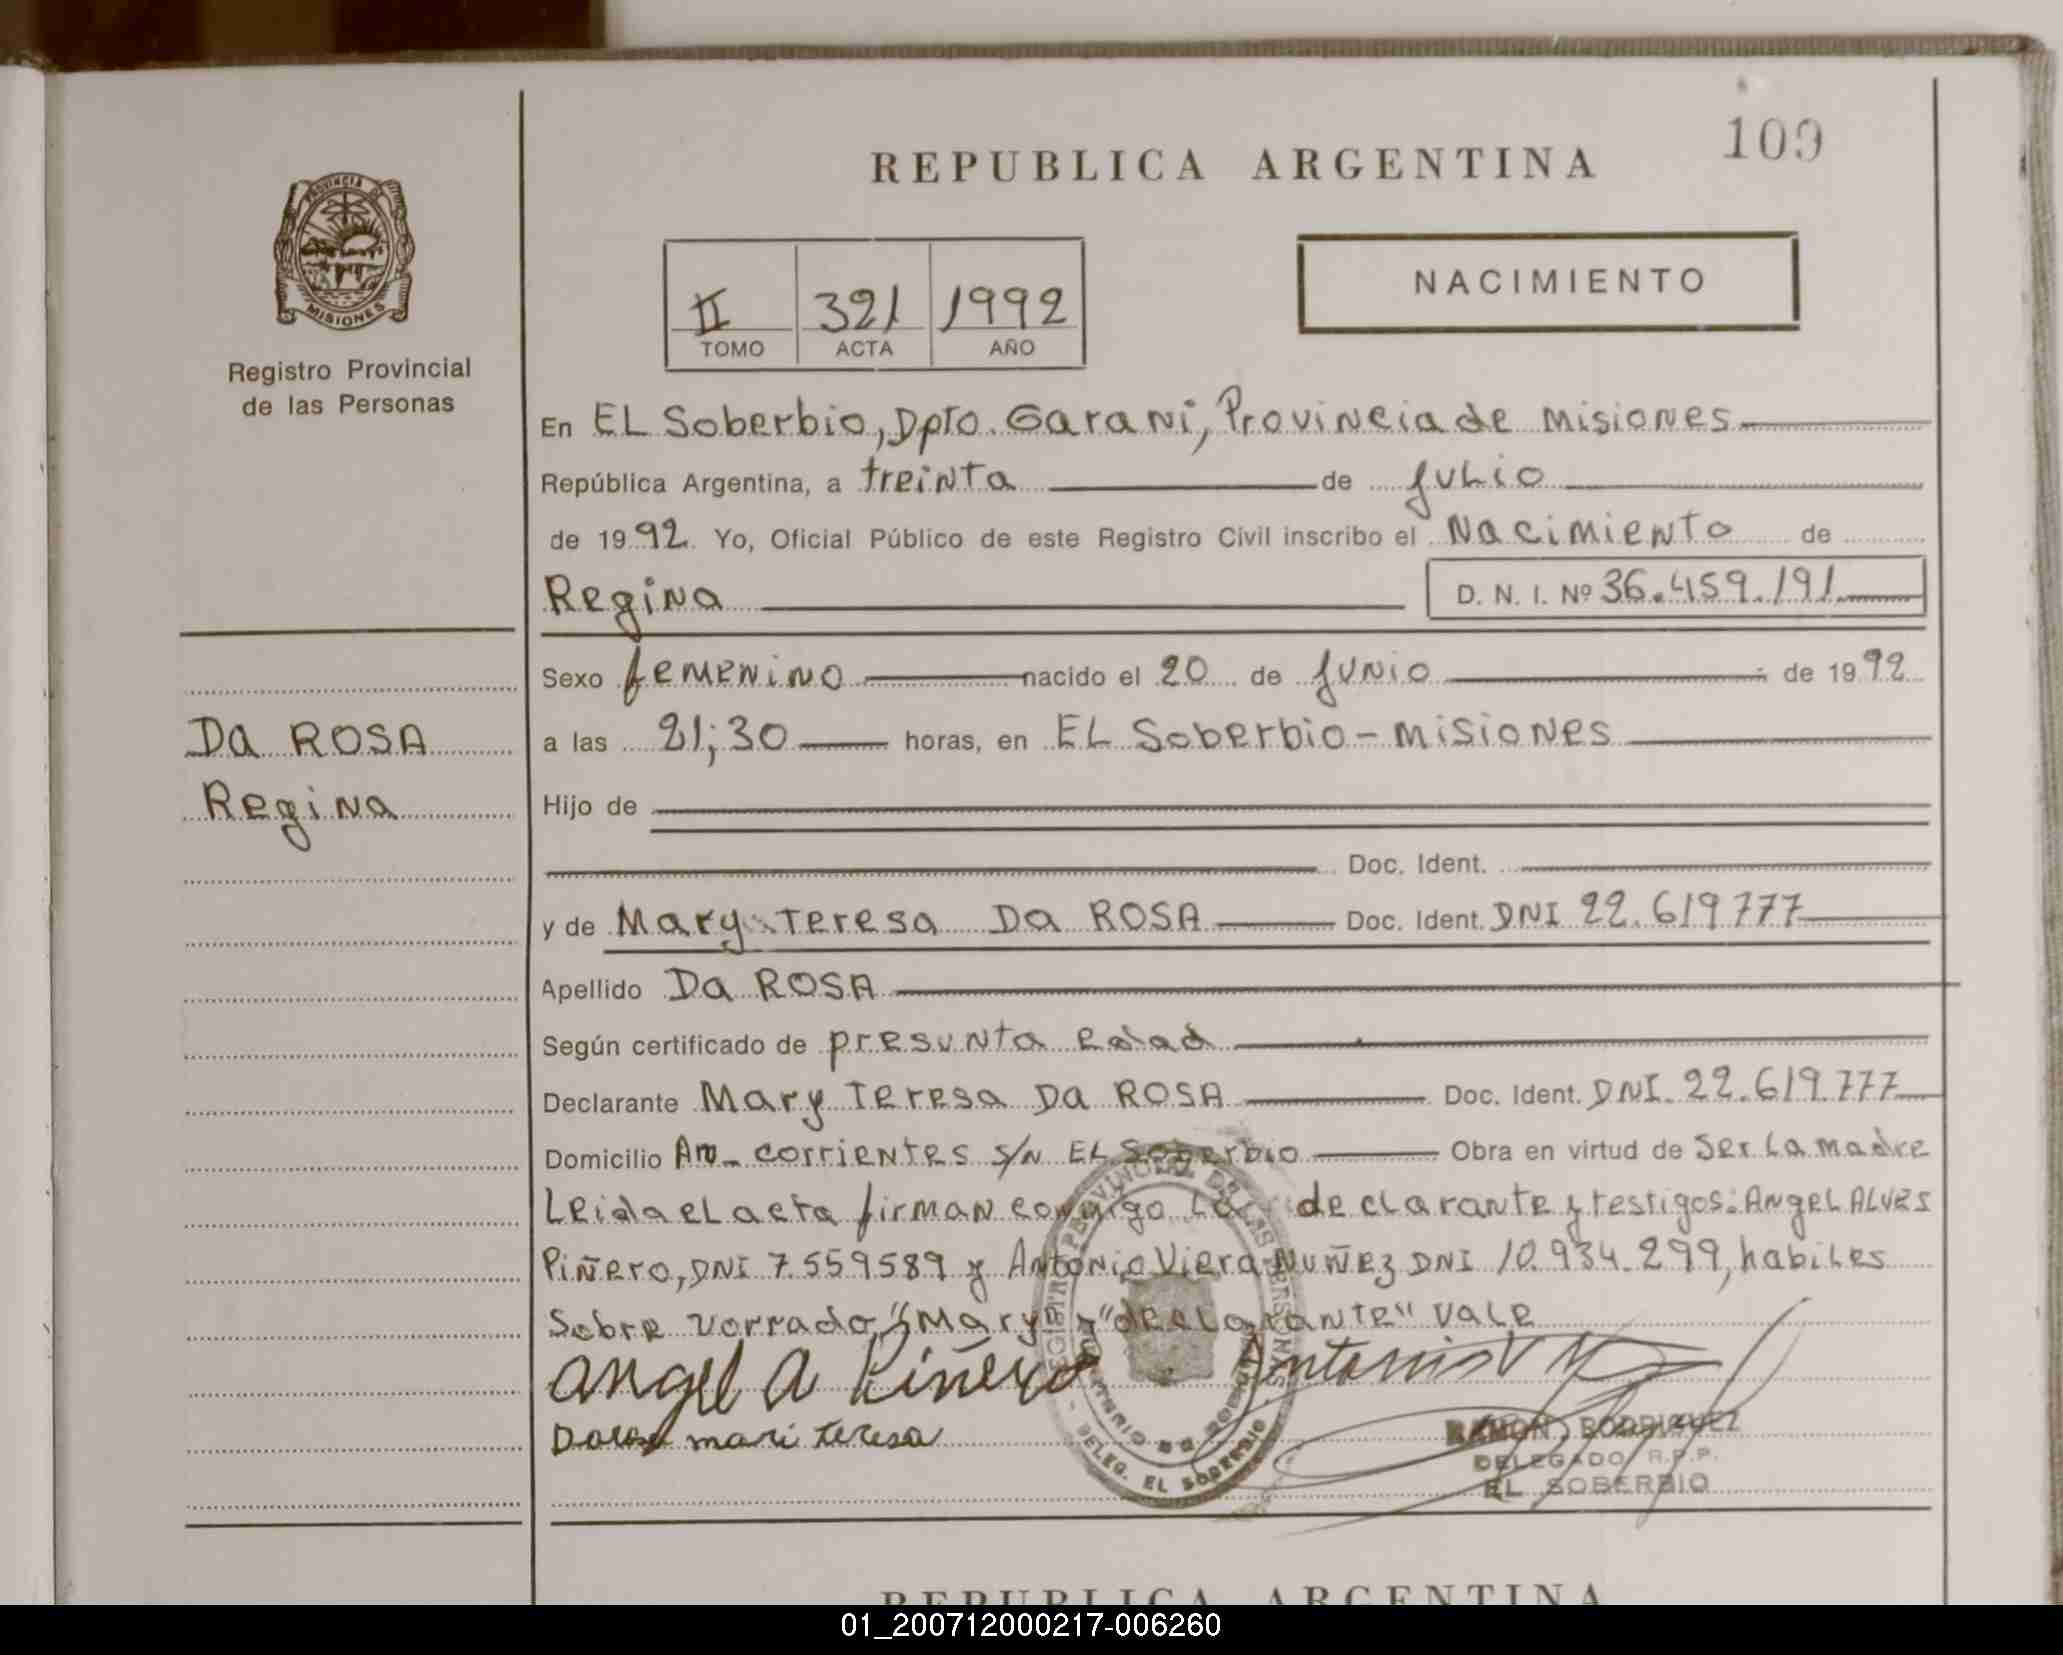 109
REPUBLICA ARGENTINA
PROVINCIA DE
MISIONES
Registro Provincial
de las Personas
II 321 1992
TOMO ACTA AÑO
NACIMIENTO
En EL Soberbio, Dpto. Garani, Provincia de Misiones
República Argentina, a treinta de Julio
de 1992. Yo, Oficial Público de este Registro Civil inscribo el Nacimiento de
Regina D. N. I. Nº 36.459.191
Sexo femenino nacido el 20 de Junio de 1992
DA ROSA
a las 21;30 horas, en EL Soberbio - Misiones
Regina
Hijo de
Doc. Ident.
y de Mary Teresa DA ROSA Doc. Ident. DNI 22.619777
Apellido DA ROSA
Según certificado de presunta edad
Declarante Mary Teresa DA ROSA Doc. Ident. DNI. 22.619.777
Domicilio Av- corrientes s/N EL Soberbio Obra en virtud de Ser La madre
Leida el acta firman conmigo La declarante y testigos: Angel ALves
Piñero, DNI 7.559589 y Antonio Viera Nuñez DNI 10.934.299, habiles
Sobre vorrado "Mary" y "declarante" vale
angel A Piñeyro Antonio V N
mari teresa
REGISTRO PROVINCIAL DE LAS PERSONAS
DELEG. EL SOBERBIO
RAMON RODRIGUEZ
DELEGADO R.P.P.
EL SOBERBIO
REPUBLICA ARGENTINA
01_200712000217-006260